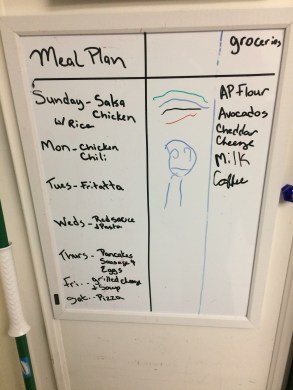 Meal Plan
groceries
Sunday - Salsa
Chicken
w/ Rice
Mon - Chicken
Chili
Tues - Fritatta
Weds - Red sauce
+ Pasta
Thurs - Pancakes
Sausage +
Eggs
Fri... grilled cheese
+ Soup
Sat... Pizza
AP Flour
Avocados
Cheddar
Cheese
Milk
Coffee